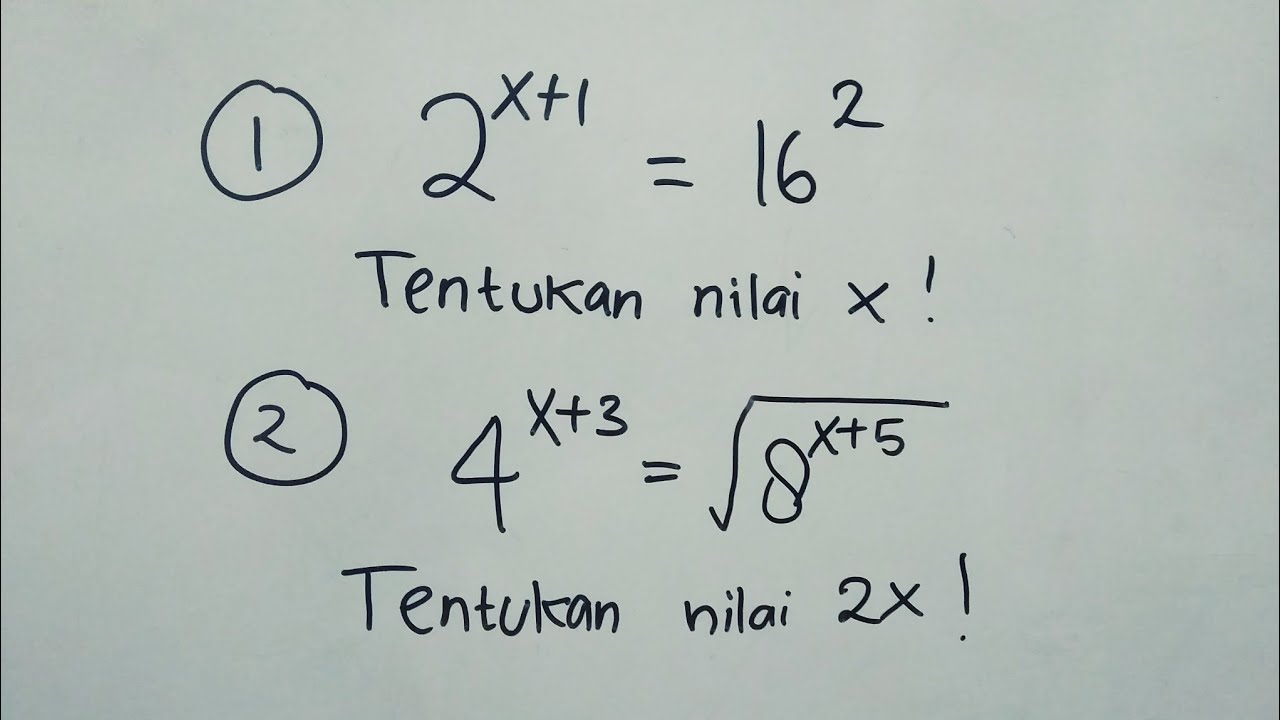 ① 2^{x+1} = 16^2
Tentukan nilai x !
② 4^{x+3} = √(8^{x+5})
Tentukan nilai 2x !